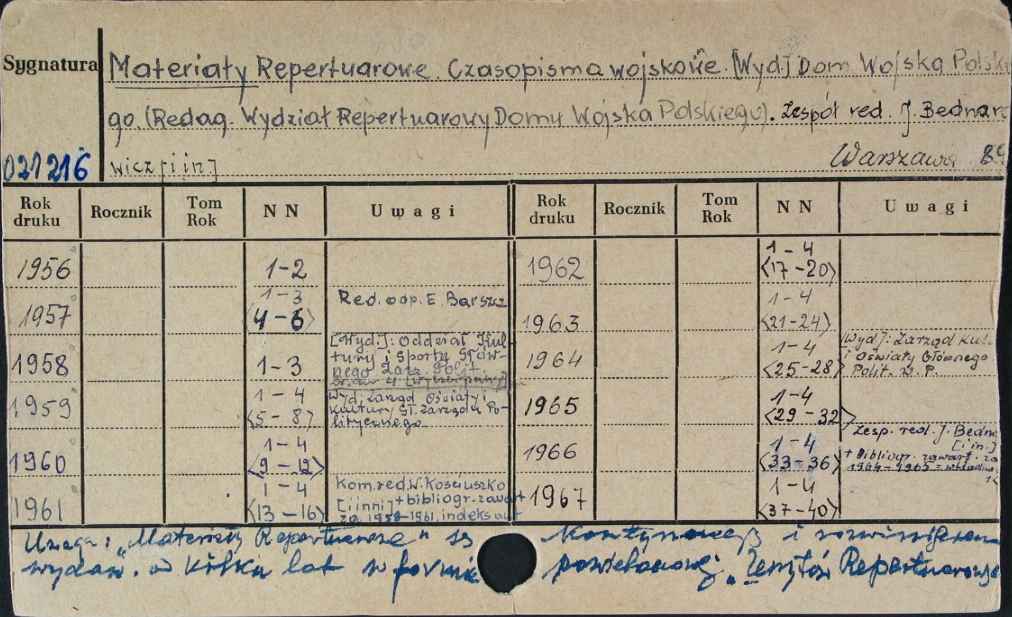 Sygnatura
Materiały Repertuarowe. Czasopisma wojskowe. [Wyd.] Dom Wojska Polski
go. (Redag. Wydział Repertuarowy Domu Wojska Polskiego). Zespół red. J. Bednar
021216 wicz [i in.] Warszawa 89
Rok druku Rocznik Tom Rok NN Uwagi Rok druku Rocznik Tom Rok NN Uwagi
1956 1-2
1957 1-3 <4-6> Red. odp. E. Barszcz
1958 1-3 [Wyd.]: Oddział Kul-
tury i Sportu Głów-
nego Zarz. Polit.
1959 1-4 <5-8> Wyd. Zarząd Oświaty i
Kultury Gł. Zarządu Po-
litycznego
1960 1-4 <9-12>
1961 1-4 <13-16> Kom. red. W. Kościuszko
[i inni] + bibliogr. zawart
za 1958-1961, indeks aut
1962 1-4 <17-20>
1963 1-4 <21-24>
1964 1-4 <25-28> [Wyd]: Zarząd Kul.
i Oświaty Głównego
Polit. W. P.
1965 1-4 <29-32>
1966 1-4 <33-36> Zesp. red. J. Bedn
[i in.]
+ Bibliogr. zawart. za
1964-1965 = wkładka
1967 1-4 <37-40>
Uwaga: "Materiały Repertuarowe" są kontynuacją i rozwinięciem
wydaw. od kilku lat w formie powielanej "Zeszytów Repertuarowych